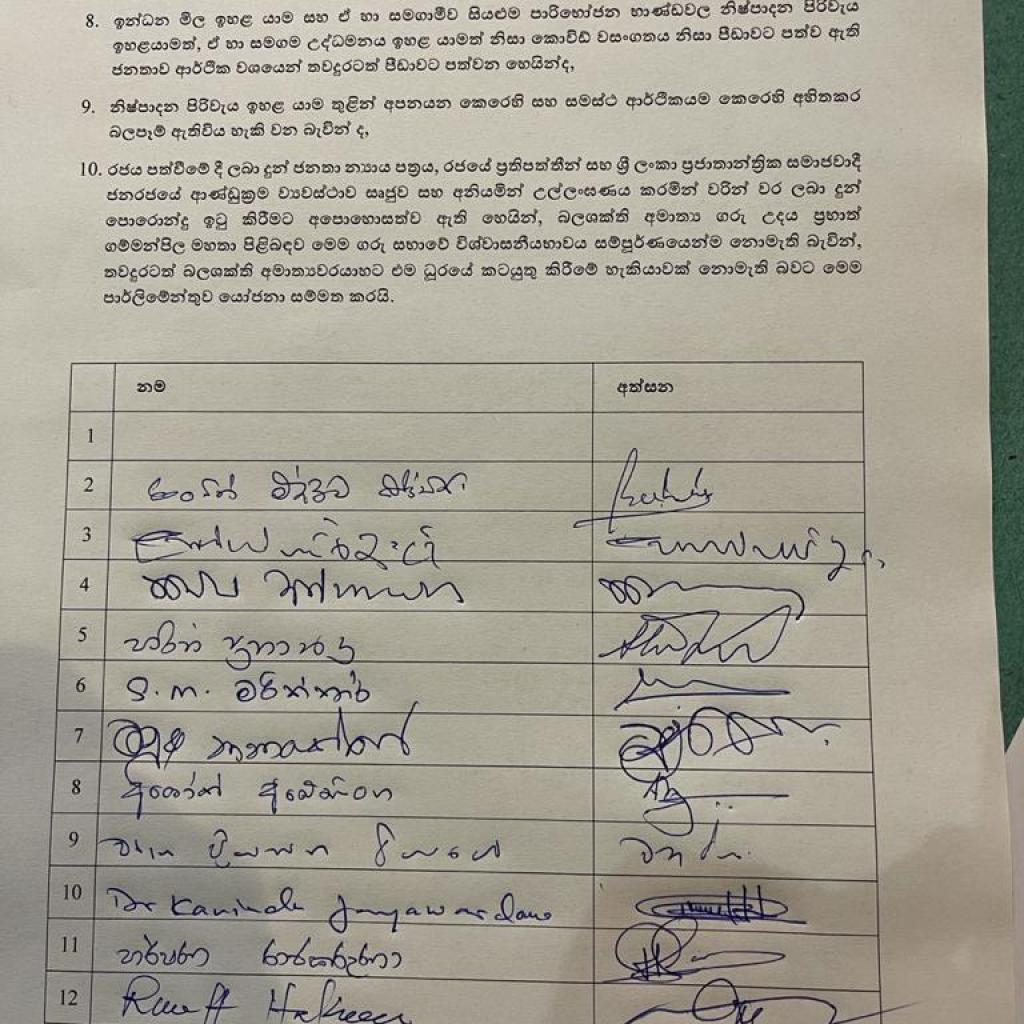 8. ඉන්ධන මිල ඉහළ යාම සහ ඒ හා සමගාමීව සියළුම පාරිභෝජන භාණ්ඩවල නිෂ්පාදන පිරිවැය
ඉහළයාමත්, ඒ හා සමගම උද්ධමනය ඉහළ යාමත් නිසා කොවිඩ් වසංගතය නිසා පීඩාවට පත්ව ඇති
ජනතාව ආර්ථික වශයෙන් තවදුරටත් පීඩාවට පත්වන හෙයින්ද,
9. නිෂ්පාදන පිරිවැය ඉහළ යාම තුළින් අපනයන කෙරෙහි සහ සමස්ථ ආර්ථිකයම කෙරෙහි අහිතකර
බලපෑම් ඇතිවිය හැකි වන බැවින් ද,
10. රජය පත්වීමේ දී ලබා දුන් ජනතා න්‍යාය පත්‍රය, රජයේ ප්‍රතිපත්තීන් සහ ශ්‍රී ලංකා ප්‍රජාතාන්ත්‍රික සමාජවාදී
ජනරජයේ ආණ්ඩුක්‍රම ව්‍යවස්ථාව සෘජුව සහ අනියමින් උල්ලංඝණය කරමින් වරින් වර ලබා දුන්
පොරොන්දු ඉටු කිරීමට අපොහොසත්ව ඇති හෙයින්, බලශක්ති අමාත්‍ය ගරු උදය ප්‍රභාත්
ගම්මන්පිල මහතා පිළිබඳව මෙම ගරු සභාවේ විශ්වාසනීයභාවය සම්පූර්ණයෙන්ම නොමැති බැවින්,
තවදුරටත් බලශක්ති අමාත්‍යවරයාහට එම ධූරයේ කටයුතු කිරීමේ හැකියාවක් නොමැති බවට මෙම
පාර්ලිමේන්තුව යෝජනා සම්මත කරයි.
නම අත්සන
1
2
3
4
5 හරින් ප්‍රනාන්දු
6 S.M. මරික්කාර්
7
8 අශෝක් අබේසිංහ
9
10 Dr Kavinda Jayawardana
11
12 Rauff Hakeem